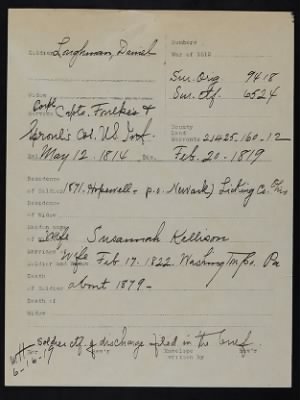 Soldier Loughman, Daniel
Numbers
War of 1812
Sur. Orig 9418
Sur. Ctf. 6524
Widow
Capts. Foulkes &
Sproul's Col. U.S. Inf.
County
Land
Warrants 21425-160-12
May 12. 1814 Dis. Feb. 20-1819
Residence
of Soldier 1871. Hopewell - p.o. Newark) Licking Co. Ohio
Residence
of Widow
Maiden name
of Wife Susannah Kellison
Wife Feb 17. 1822. Washington Co. Pa
Soldier and Widow
Death
of Soldier about 1879-
Death of
Widow
Soldier ctf. of discharge filed in the brief.
6-16-19
Envelope
written by